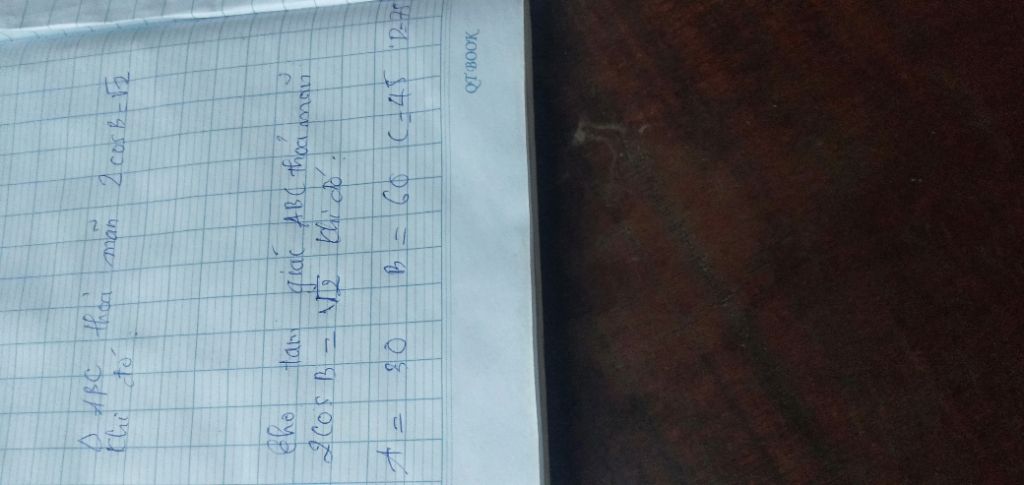 Δ ABC thoả mãn 2cosB=√2
Khi đó
Cho tam giác ABC thoả mãn
2cosB = √2 khi đó:
A = 30 B = 60 C=45 D=75
QTBOOK